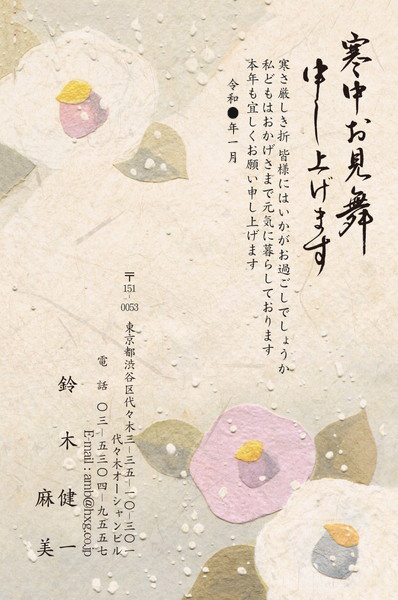 寒中お見舞
申し上げます
寒さ厳しき折 皆様にはいかがお過ごしでしょうか
私どもはおかげさまで元気に暮らしております
本年も宜しくお願い申し上げます
令和●年一月
〒151-0053
東京都渋谷区代々木三-三五-一〇-三〇一
代々木オーシャンビル
電話 〇三-五三〇四-九五五七
E-mail : amb@hxg.co.jp
鈴木健一
麻美